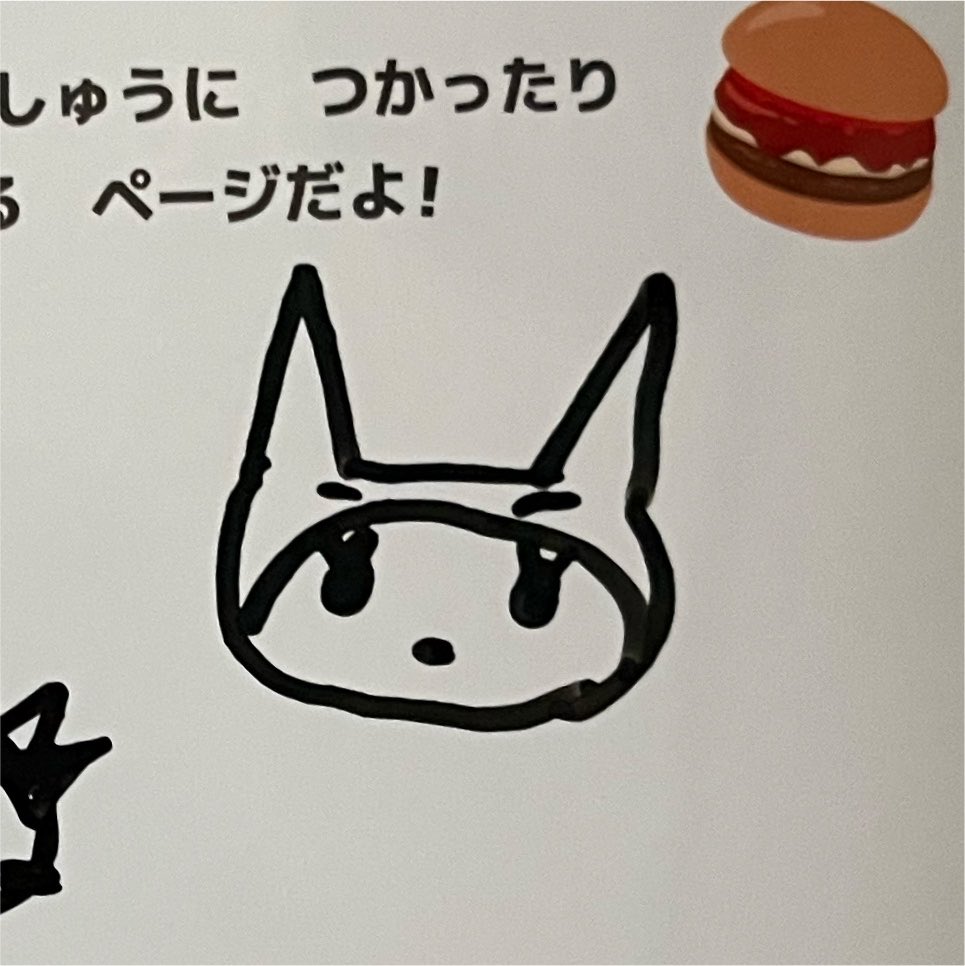 しゅうに つかったり
る ページだよ!